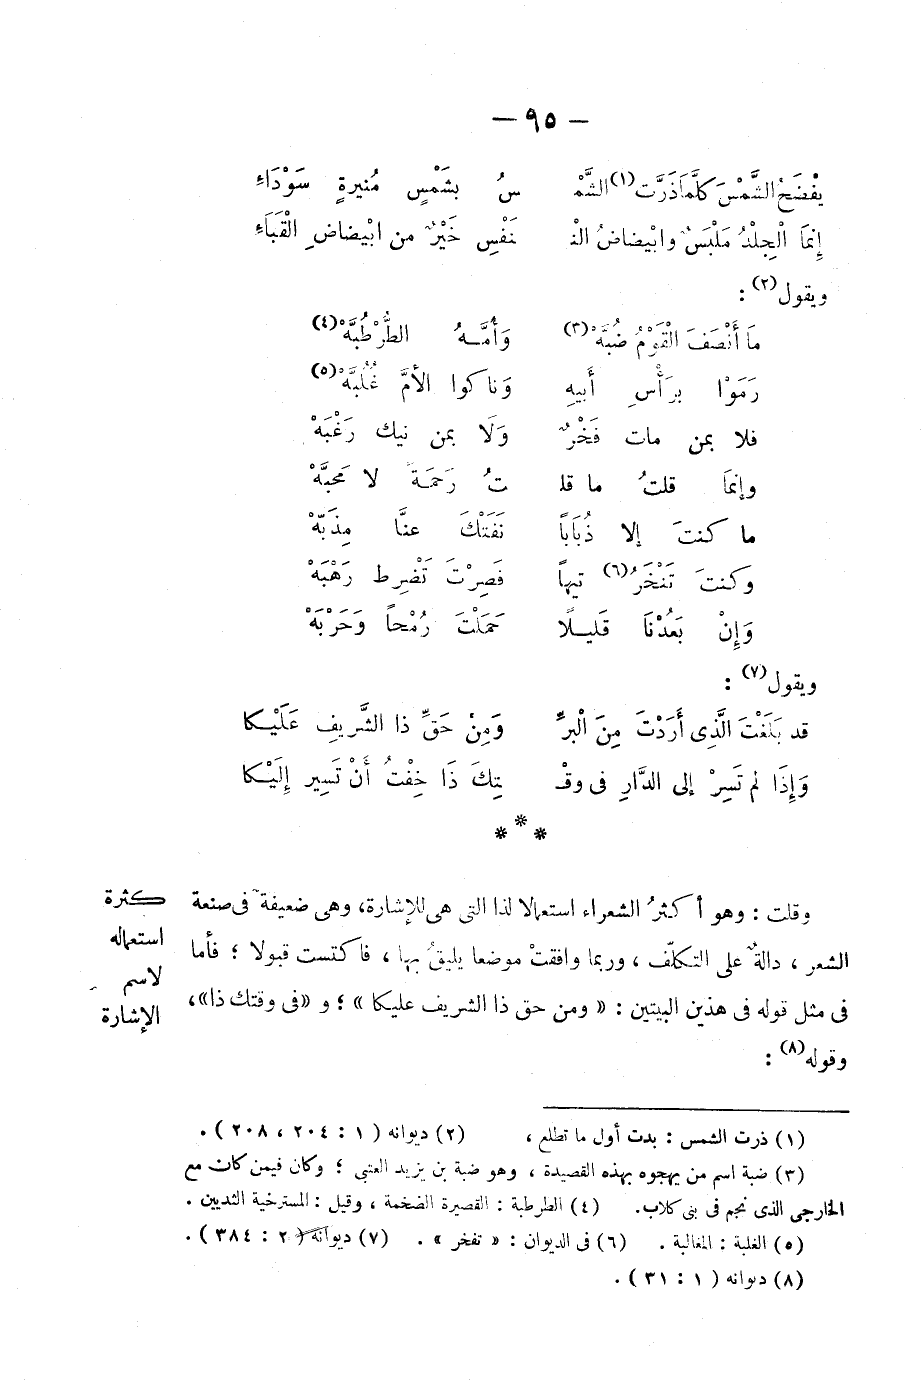 — ٩٥ —
يَفْضَحُ الشَّمْسَ كلَّمَا ذَرَّت (١) الشَّمْـ ـسُ بشَمْسٍ مُنيرةٍ سَوْدَاءِ
إنمَا الْجِلْدُ مَلْبَسٌ وابْيضاضُ النْـ ـنَفْسِ خَيْرٌ من ابْيضاضِ الْقَبَاءِ
ويقول (٢) :
مَا أَنْصَفَ الْقَوْمُ ضُبَّهْ (٣) وَأُمَّـهُ الطُّرْطُبَّهْ (٤)
رَمَوْا برَأْسِ أَبيهِ وَناكوا الأمَّ غُلُبَّهْ (٥)
فلا بمن مات فَخْرٌ وَلَا بمن نيك رَغْبَهْ
وإنمَا قلتُ ما قلـ ـتُ رَحمَـةً لا مَحبَّهْ
ما كنتَ إلا ذُبَاباً نَفَتْكَ عنَّا مِذَبّهْ
وكنتَ تَنْخَرُ (٦) تيهاً فَصِرْتَ تَضْرِط رَهْبَهْ
وَإِنْ بَعُدْنَا قَليـلًا حَمَلْتَ رُمْحاً وَحَرْبَهْ
ويقول (٧) :
قد بَلَغْتَ الَّذِى أَرَدْتَ مِنَ الْبرِّ وَمِنْ حَقِّ ذا الشَّرِيفِ عَلَيْـكا
وَإِذَا لم تَسِرْ إلى الدَّارِ فى وقْـ ـتِكَ ذَا خِفْتُ أَنْ تَسِير إِلَيْـكا
* * *
وقلت : وهو أكثرُ الشعراء استعمالا لذا التى هى للإشارة، وهى ضعيفةٌ فى صنعة
الشعر ، دالةٌ على التكلّف ، وربما وافقتْ موضعا يليقُ بها ، فاكتست قبولا ؛ فأما
فى مثل قوله فى هذين البيتين : « ومن حق ذا الشريف عليكا » ؛ و «فى وقتك ذا»،
وقوله (٨) :
كثرة
استعماله
لاسم
الإشارة
(١) ذرت الشمس : بدت أول ما تطلع ، (٢) ديوانه ( ١ : ٢٠٤ ، ٢٠٨ ) .
(٣) ضبة اسم من يهجوه بهذه القصيدة ، وهو ضبة بن يزيد العتبى ؛ وكان فيمن كان مع
الخارجى الذى نجم فى بنى كلاب. (٤) الطرطبة : القصيرة الضخمة ، وقيل : المسترخية الثديين .
(٥) الغلبة : المغالبة . (٦) فى الديوان : « تفخر » . (٧) ديوانه ( ٢ : ٣٨٤ ) .
(٨) ديوانه ( ١ : ٣١ ) .